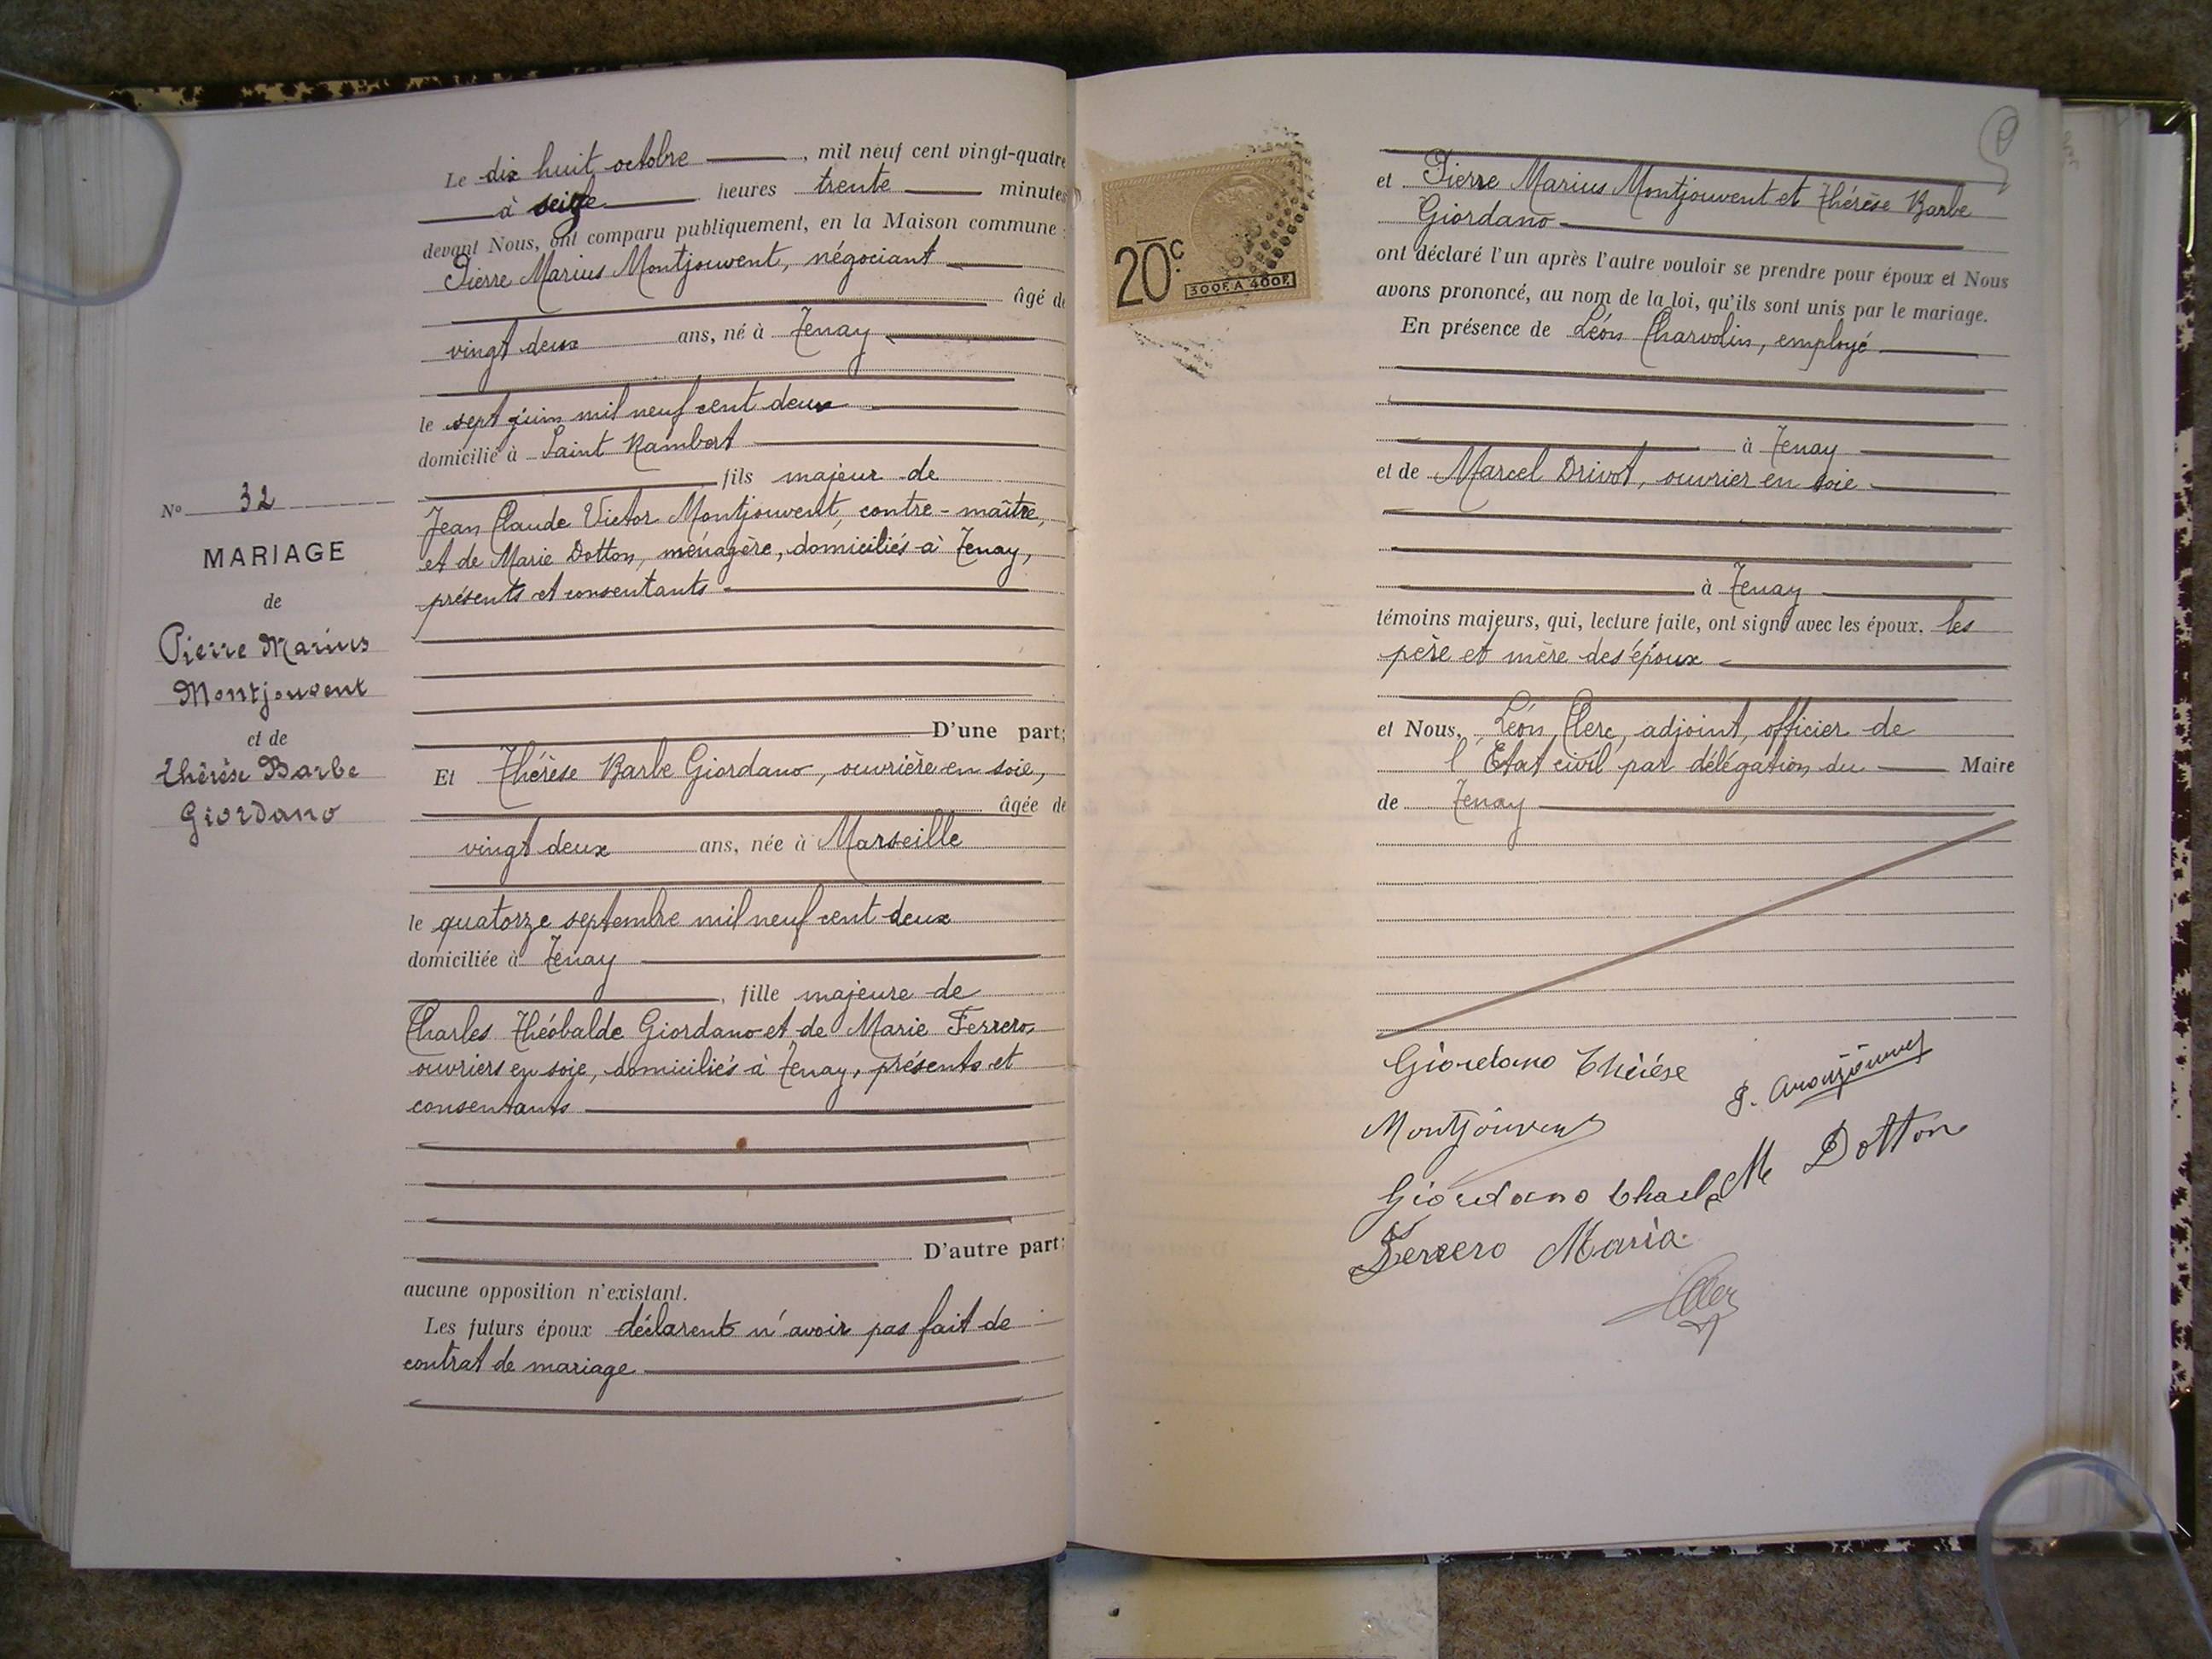 Le dix huit octobre, mil neuf cent vingt-quatre
à seize heures trente minutes
devant Nous, ont comparu publiquement, en la Maison commune :
Pierre Marius Montjouvent, négociant
âgé de
vingt deux ans, né à Tenay
le sept juin mil neuf cent deux
domicilié à Saint Rambert
fils majeur de
Jean Claude Victor Montjouvent, contre-maître,
et de Marie Dotton, ménagère, domiciliés à Tenay,
présents et consentants
D'une part;
Et Thérèse Barbe Giordano, ouvrière en soie,
âgée de
vingt deux ans, née à Marseille
le quatorze septembre mil neuf cent deux
domiciliée à Tenay
, fille majeure de
Charles Théobalde Giordano et de Marie Ferrero,
ouvriers en soie, domiciliés à Tenay, présents et
consentants
D'autre part;
aucune opposition n'existant.
Les futurs époux déclarent n'avoir pas fait de
contrat de mariage
No 32
MARIAGE
de
Pierre Marius
Montjouvent
et de
Thérèse Barbe
Giordano
20c
300F A 400F
et Pierre Marius Montjouvent et Thérèse Barbe
Giordano
ont déclaré l'un après l'autre vouloir se prendre pour époux et Nous
avons prononcé, au nom de la loi, qu'ils sont unis par le mariage.
En présence de Léon Charvolin, employé
à Tenay
et de Marcel Drivot, ouvrier en soie
à Tenay
témoins majeurs, qui, lecture faite, ont signé avec les époux, les
père et mère des époux
et Nous, Léon Clerc, adjoint, officier de
l'Etat civil par délégation du Maire
de Tenay
Giordano Thérése
Montjouvent
Giordano Charle
M Dotton
Ferrero Maria